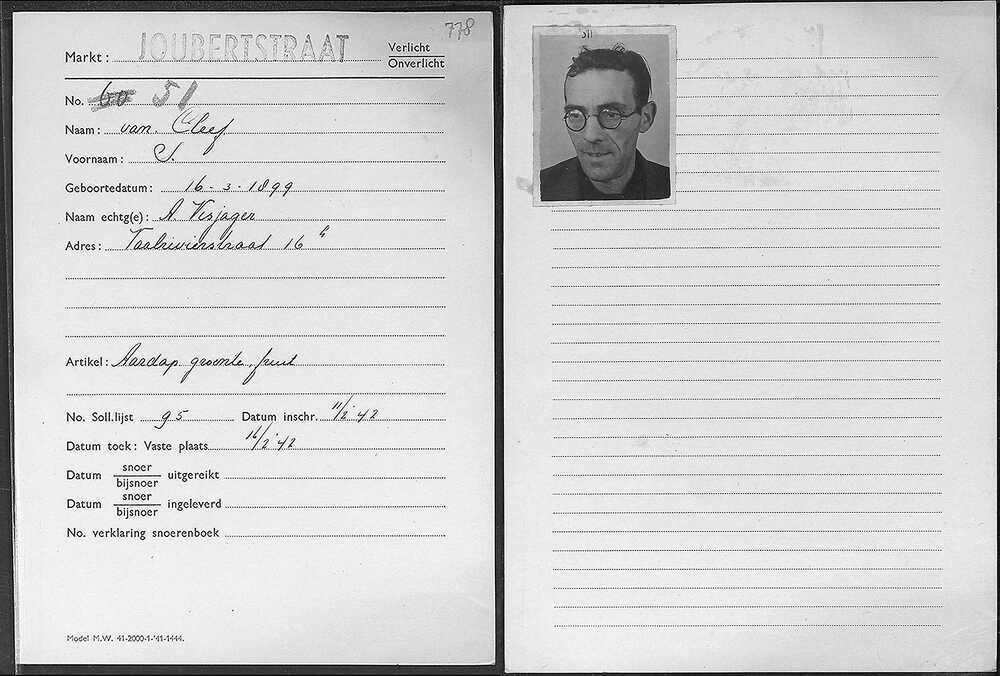 778
Markt: JOUBERTSTRAAT Verlicht
Onverlicht
No. 60 51
Naam: van Cleef
Voornaam: S.
Geboortedatum: 16-3-1899
Naam echtg(e): A Visjager
Adres: Taalrivierstraat 16 h
Artikel: Aardap. groente, fruit
No. Soll.lijst 95 Datum inschr. 11/2 '42
Datum toek: Vaste plaats 16/2 '42
Datum snoer
bijsnoer uitgereikt
Datum snoer
bijsnoer ingeleverd
No. verklaring snoerenboek
Model M.W. 41-2000-1-'41-1444.
511